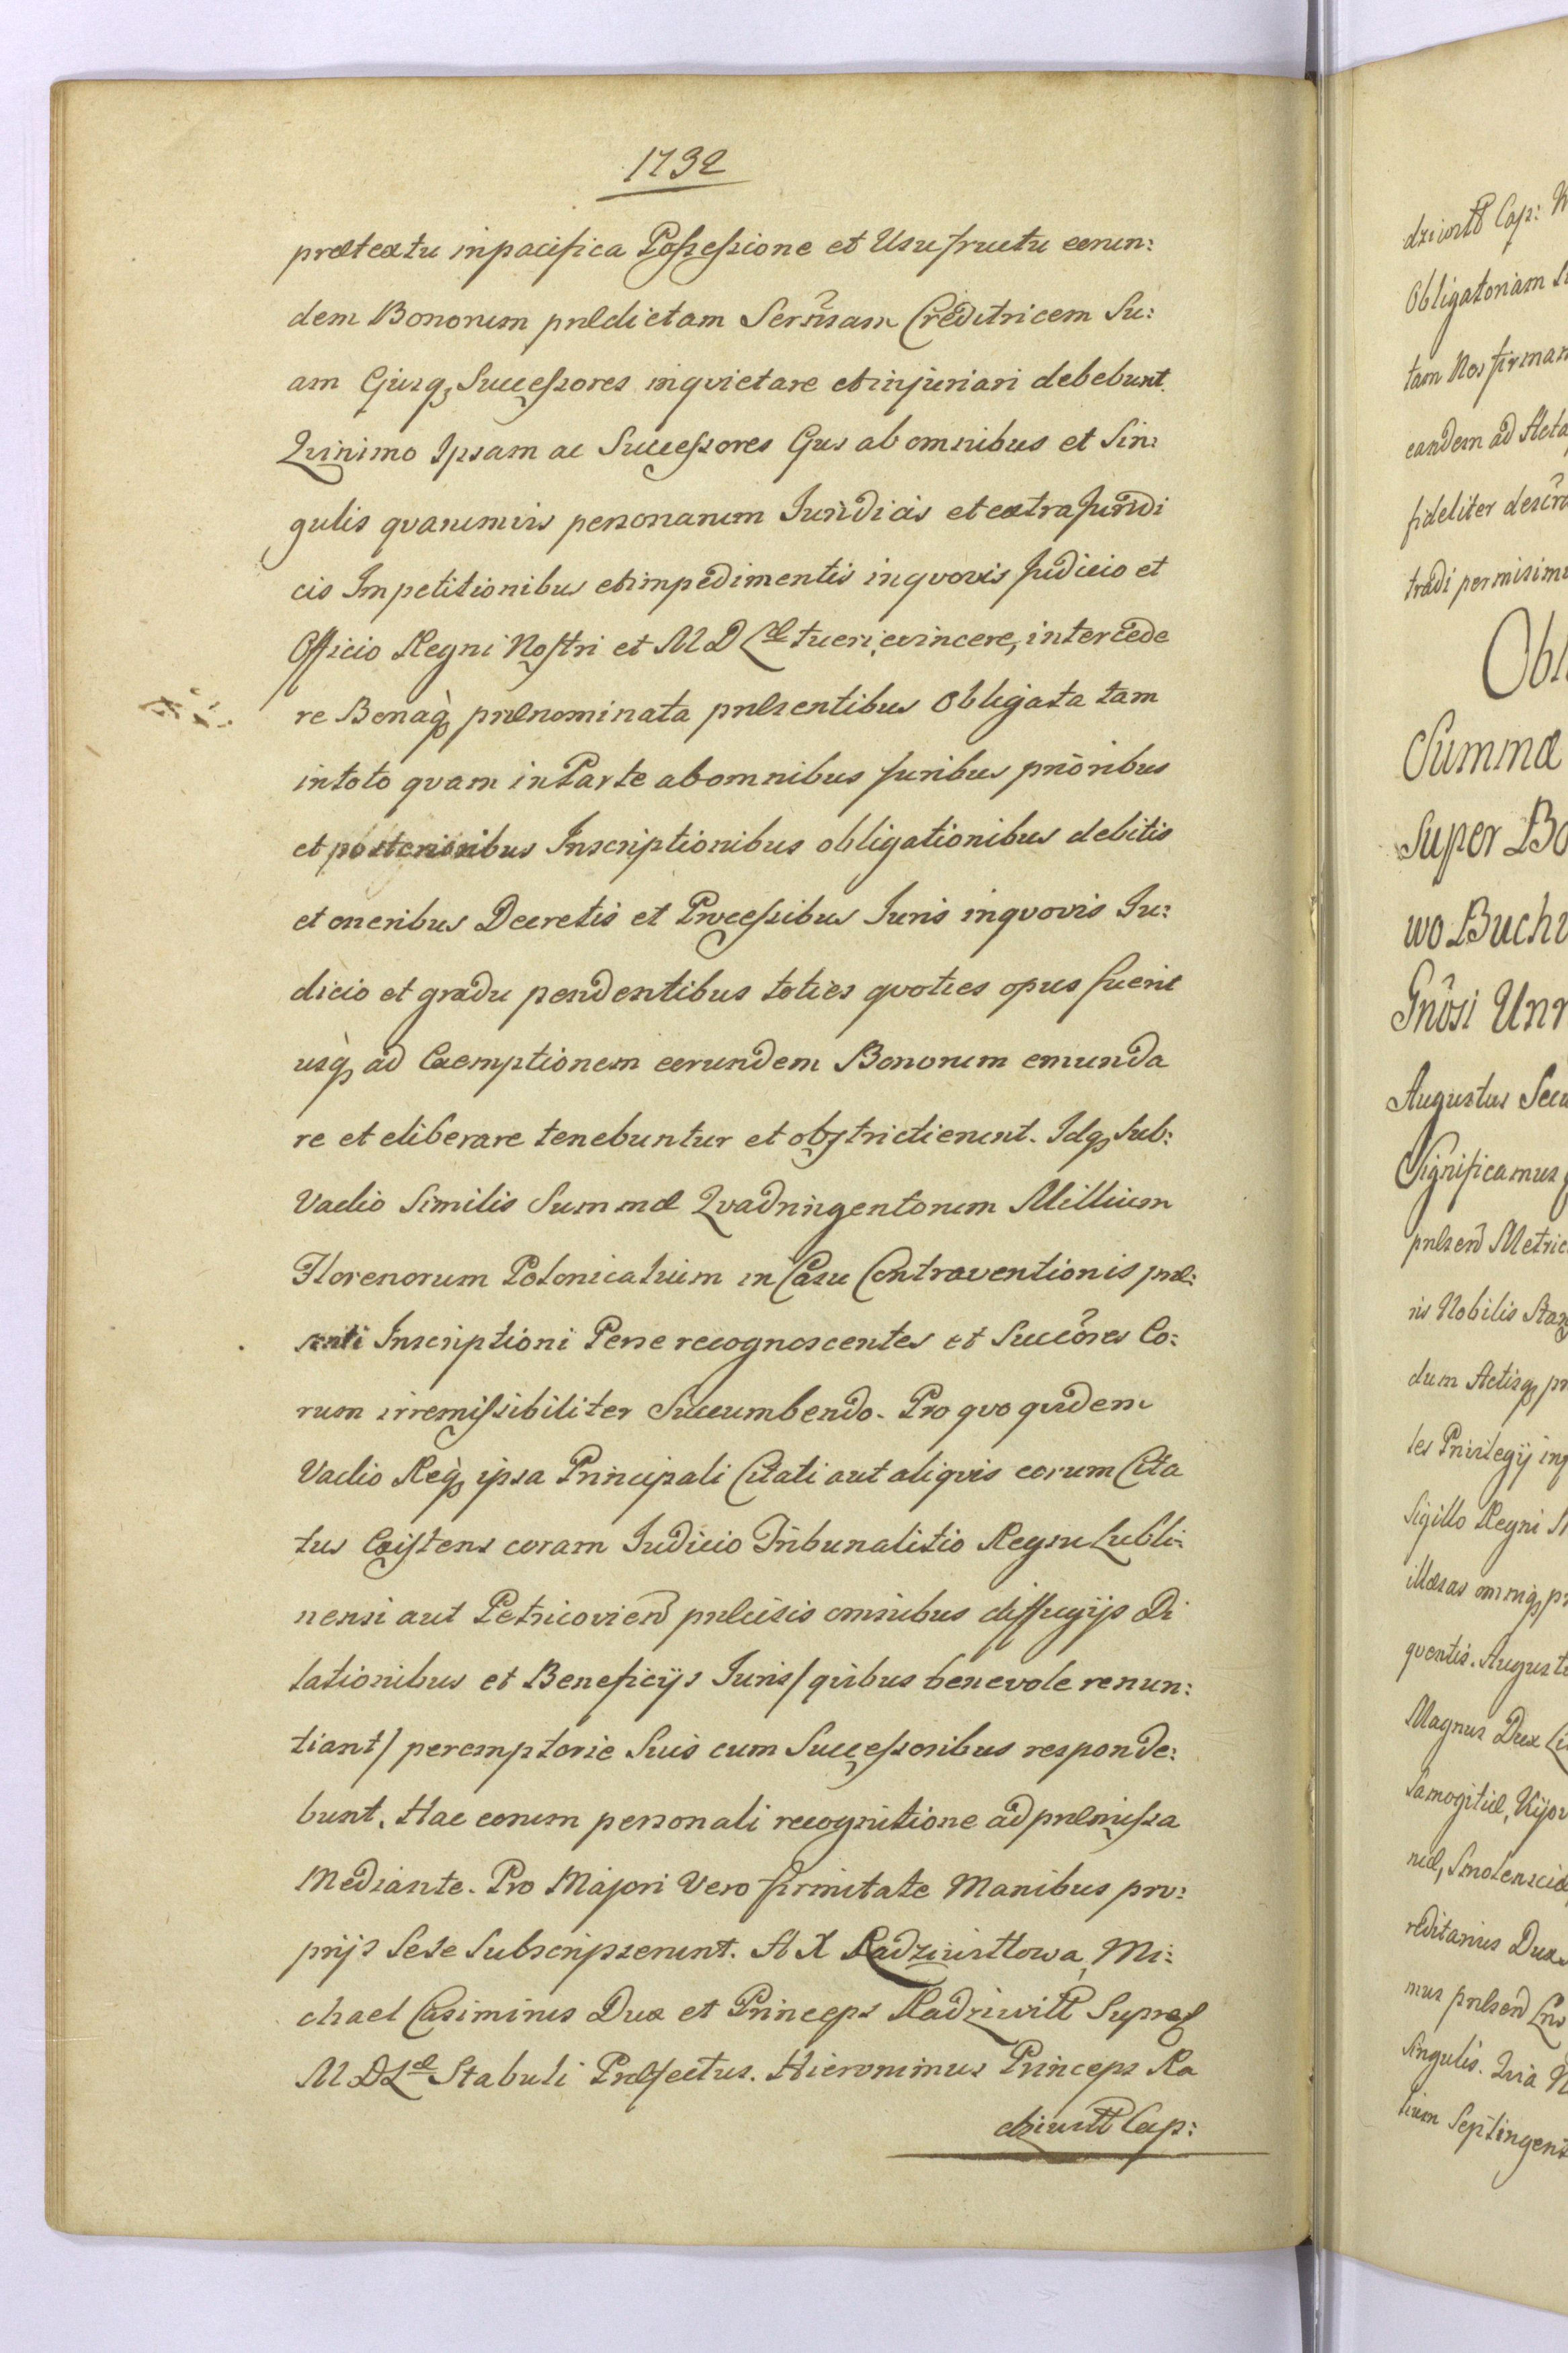 1732
prætextu in pacifica Possessione et Usufructu eorun:
dem Bonorum prædictam Serñsam Creditricem Su:
am Ejusq, Successores inqvietare et injuriari debebunt.
Qvinimo Ipsam ac Successores Ejus ab omnibus et Sin:
gulis qvarumvis personarum Juridicis et extra Juridi
cis Impetitionibus et impedimentis in qvovis Judicio et
Officio Regni Nostri et M D Læ tueri, evincere, intercede
re Bonaq, prænominata præsentibus Obligata tam
in toto qvam in Parte ab omnibus Juribus prioribus
et posterioribus Inscriptionibus obligationibus debitis
et oneribus Decretis et Processibus Juris in qvovis Ju:
dicio et gradu pendentibus toties qvoties opus fuerit
usq, ad Exemptionem eorundem Bonorum emunda
re et eliberare tenebuntur et obstricti erunt. Idq, Sub:
Vadio Similis Summæ Qvadringentorum Millium
Florenorum Polonicalium in Casu Contraventionis præ:
senti Inscriptioni Per se recognoscentes et Succõres Eo:
rum irremissibiliter Succumbendo. Pro qvo qvidem
Vadio Req, ipsa Principali Citati aut aliqvis eorum Cita
tus Existens coram Judicio Tribunalitio Regni Lubli:
nensi aut Petricovien præcisis omnibus diffugijs Di
lationibus et Beneficijs Juris/ qvibus benevole renun:
tiant/ peremptorie Suis cum Successoribus responde:
bunt. Hac eorum personali recognitione ad præmissa
Mediante. Pro Majori Vero firmitate Manibus pro:
prijs Sese Subscripserunt. A X Radziwiłłowa, Mi:
chael Casimirus Dux et Princeps Radziwiłł Supraæ
M D Læ Stabuli Præfectus. Hieronimus Princeps Ra
dziwiłł Cap:
dziwiłł Cap:
Obligatoriam
tam Nos firmam
eandem ad Acta
fideliter descr
tradi permisimu
Obl
Summæ
Super Bo
wo Buch
Gnõsi Unr
Augustus Secu
Significamus
præsen Metric
ris Nobilis Stan
dum Actisq, pr
les Privilegij ing
Sigillo Regni
illæsas omniq, p
qventis. Augustu
Magnus Dux Li
Samogitiæ, Kijov
niæ, Smolensciæ
reditarius Dux
mus præsen
Singulis. Qvia
lium Septingent